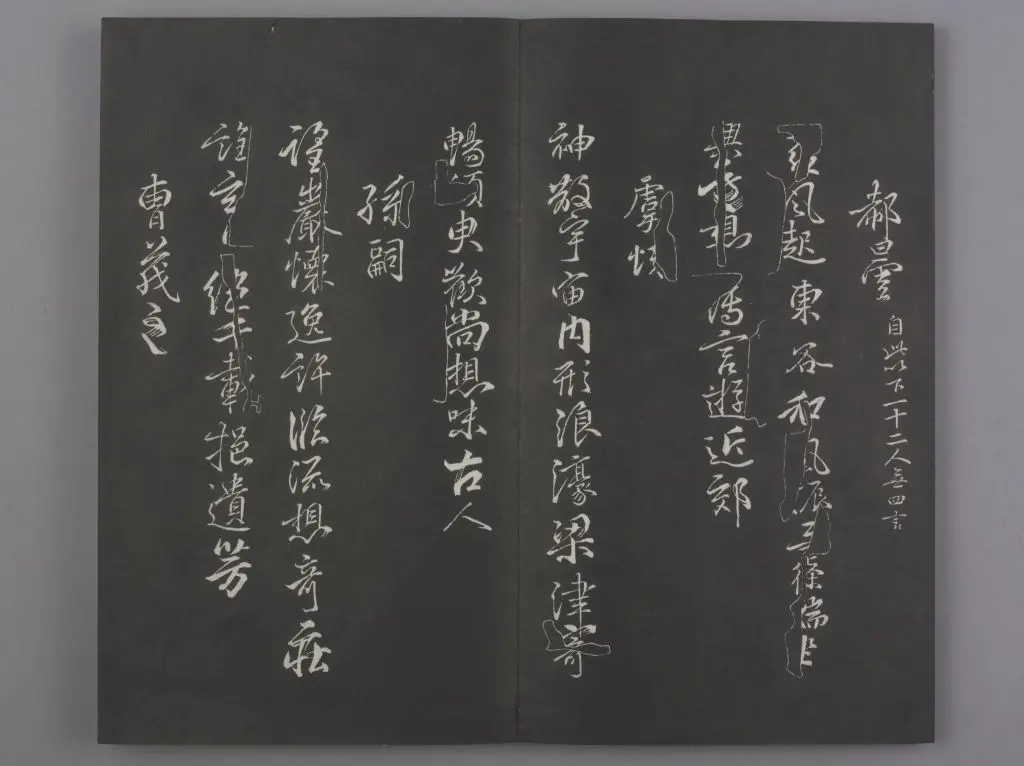 郗曇 自此下一十二人無四言
風起東谷和氣振柔條端坐
興遠想薄言遊近郊
虞悅
神散宇宙內形浪濠梁津寄
暢須臾歡尚想味古人
孫嗣
望巖懷逸許臨流想奇莊
誰云絕千載挹遺芳
曹茂之